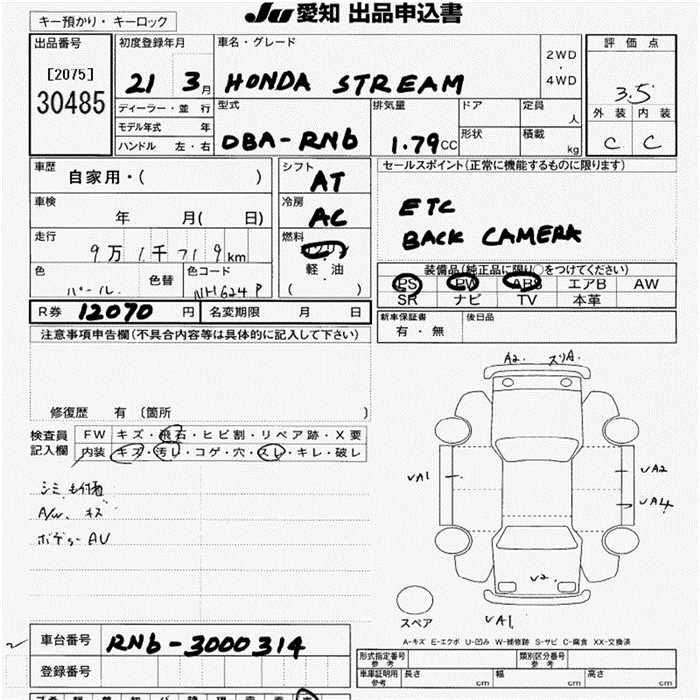 JU 愛知 出品申込書
キー預かり・キーロック
出品番号
[2075]
30485
初度登録年月
21 3月
車名・グレード
HONDA STREAM
2WD
・
4WD
評価点
3.5
外装 内装
C C
ディーラー・並行
モデル年式 年
ハンドル 左・右
型式
DBA-RN6
排気量
1.79CC
ドア
形状
定員
人
積載
kg
車歴
自家用・( )
車検
年 月( 日)
走行
9万1千719km
色
パール.
色替
色コード
NH624P
シフト
AT
冷房
AC
燃料
ガソリン
軽・油
( )
セールスポイント(正常に機能するものに限ります)
ETC
BACK CAMERA
装備品(純正品に限り○をつけてください)
PS PW ABS エアB AW
SR ナビ TV 本革
R券 12070 円
名変期限 月 日
新車保証書
有・無
後日品
注意事項申告欄(不具合内容等は具体的に記入して下さい)
修復歴 有 (箇所 )
検査員
記入欄
FW キズ・飛石・ヒビ割・リペア跡・X要
内装 キズ・汚レ・コゲ・穴・スレ・キレ・破レ
A/W. キズ
A2. スリA.
VA1
VA2
VA4
V2.
VA1.
スペア
A-キズ E-エクボ U-凹み W-補修跡 S-サビ C-腐食 XX-交換済
車台番号
RN6-3000314
登録番号
形式指定番号
参考
類別区分番号
参考
車庫証明用
参考
長さ cm 幅 cm 高さ cm